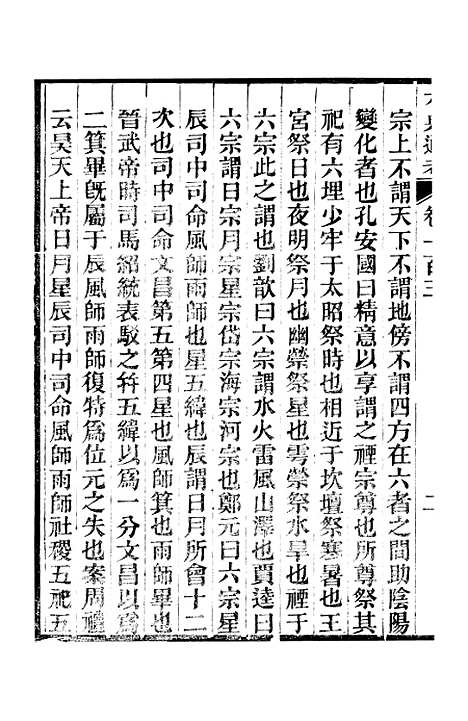 卷一百三
二
宗上不謂天下不謂地傍不謂四方在六者之間助陰陽
變化者也孔安國曰精意以享謂之禋宗尊也所尊祭其
祀有六埋少牢于太昭祭時也相近于坎壇祭寒暑也王
宮祭日也夜明祭月也幽禜祭星也雩禜祭水旱也禋于
六宗此之謂也劉歆曰六宗謂水火雷風山澤也賈逵曰
六宗謂日宗月宗星宗岱宗海宗河宗也鄭元曰六宗星
辰司中司命風師雨師也星五緯也辰謂日月所會十二
次也司中司命文昌第五第四星也風師箕也雨師畢也
晉武帝時司馬紹統表駁之幷五緯以為一分文昌以為
二箕畢旣屬于辰風師雨師復特為位元之失也案周禮
云昊天上帝日月星辰司中司命風師雨師社稷五祀五